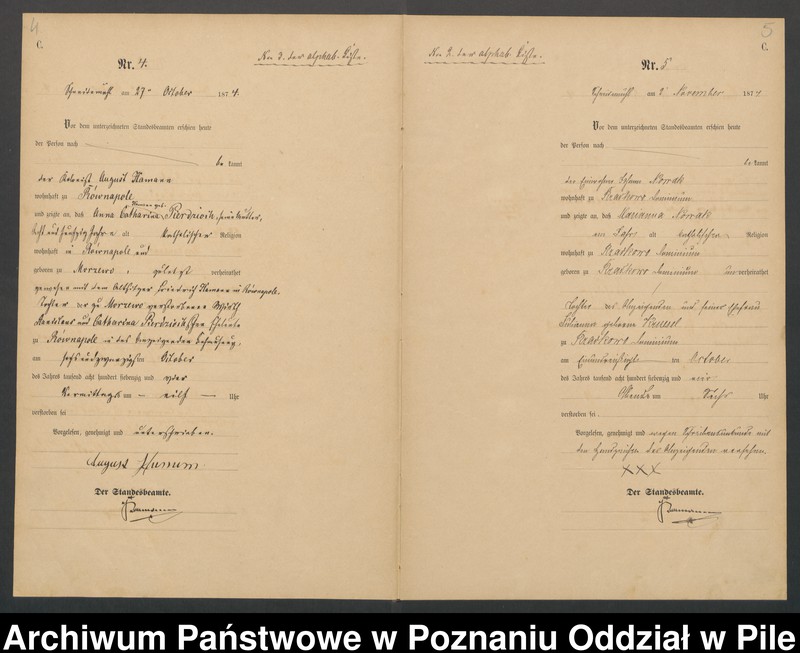 4
C.
Nr. 4.
No 3. der alphab. Liste.
Schneidemühl am 27ten October 1874.
Vor dem unterzeichneten Standesbeamten erschien heute
der Person nach
be kannt
der August Hamann
wohnhaft zu Równapole
und zeigte an, daß Anna Catharina Pierdzioch, seine Mutter,
Jahre alt katholischer Religion
wohnhaft in Równapole und
geboren zu Morzewo, zuletzt verheirathet
gewesen mit dem Altsitzer Friedrich Hamann in Równapole.
Tochter der zu Morzewo verstorbene
und Catharina Eheleute
zu Równapole in des Anzeigenden Behausung,
am sechsundzwanzigsten October
des Jahres tausend acht hundert siebenzig und vier
Vormittags um eilf Uhr
verstorben sei
Vorgelesen, genehmigt und unterschrieben.
August Hamann
Der Standesbeamte.
5
C.
No 2. der alphab. Liste.
Nr. 5
Schneidemühl am 2 November 1874
Vor dem unterzeichneten Standesbeamten erschien heute
der Person nach
be kannt
der Johann Nowak
wohnhaft zu Dominium
und zeigte an, daß Marianna Nowak
ein Jahr alt katholischer Religion
wohnhaft zu Dominium
geboren zu Dominium unverheirathet
Tochter des Anzeigenden und seiner Ehefrau
Julianna geborene
zu Dominium
am einunddreißigsten ten October
des Jahres tausend acht hundert siebenzig und vier
Abends um sechs Uhr
verstorben sei.
Vorgelesen, genehmigt und wegen Schreibensunkunde mit
den Handzeichen des Anzeigenden versehen.
XXX
Der Standesbeamte.
Archiwum Państwowe w Poznaniu Oddział w Pile